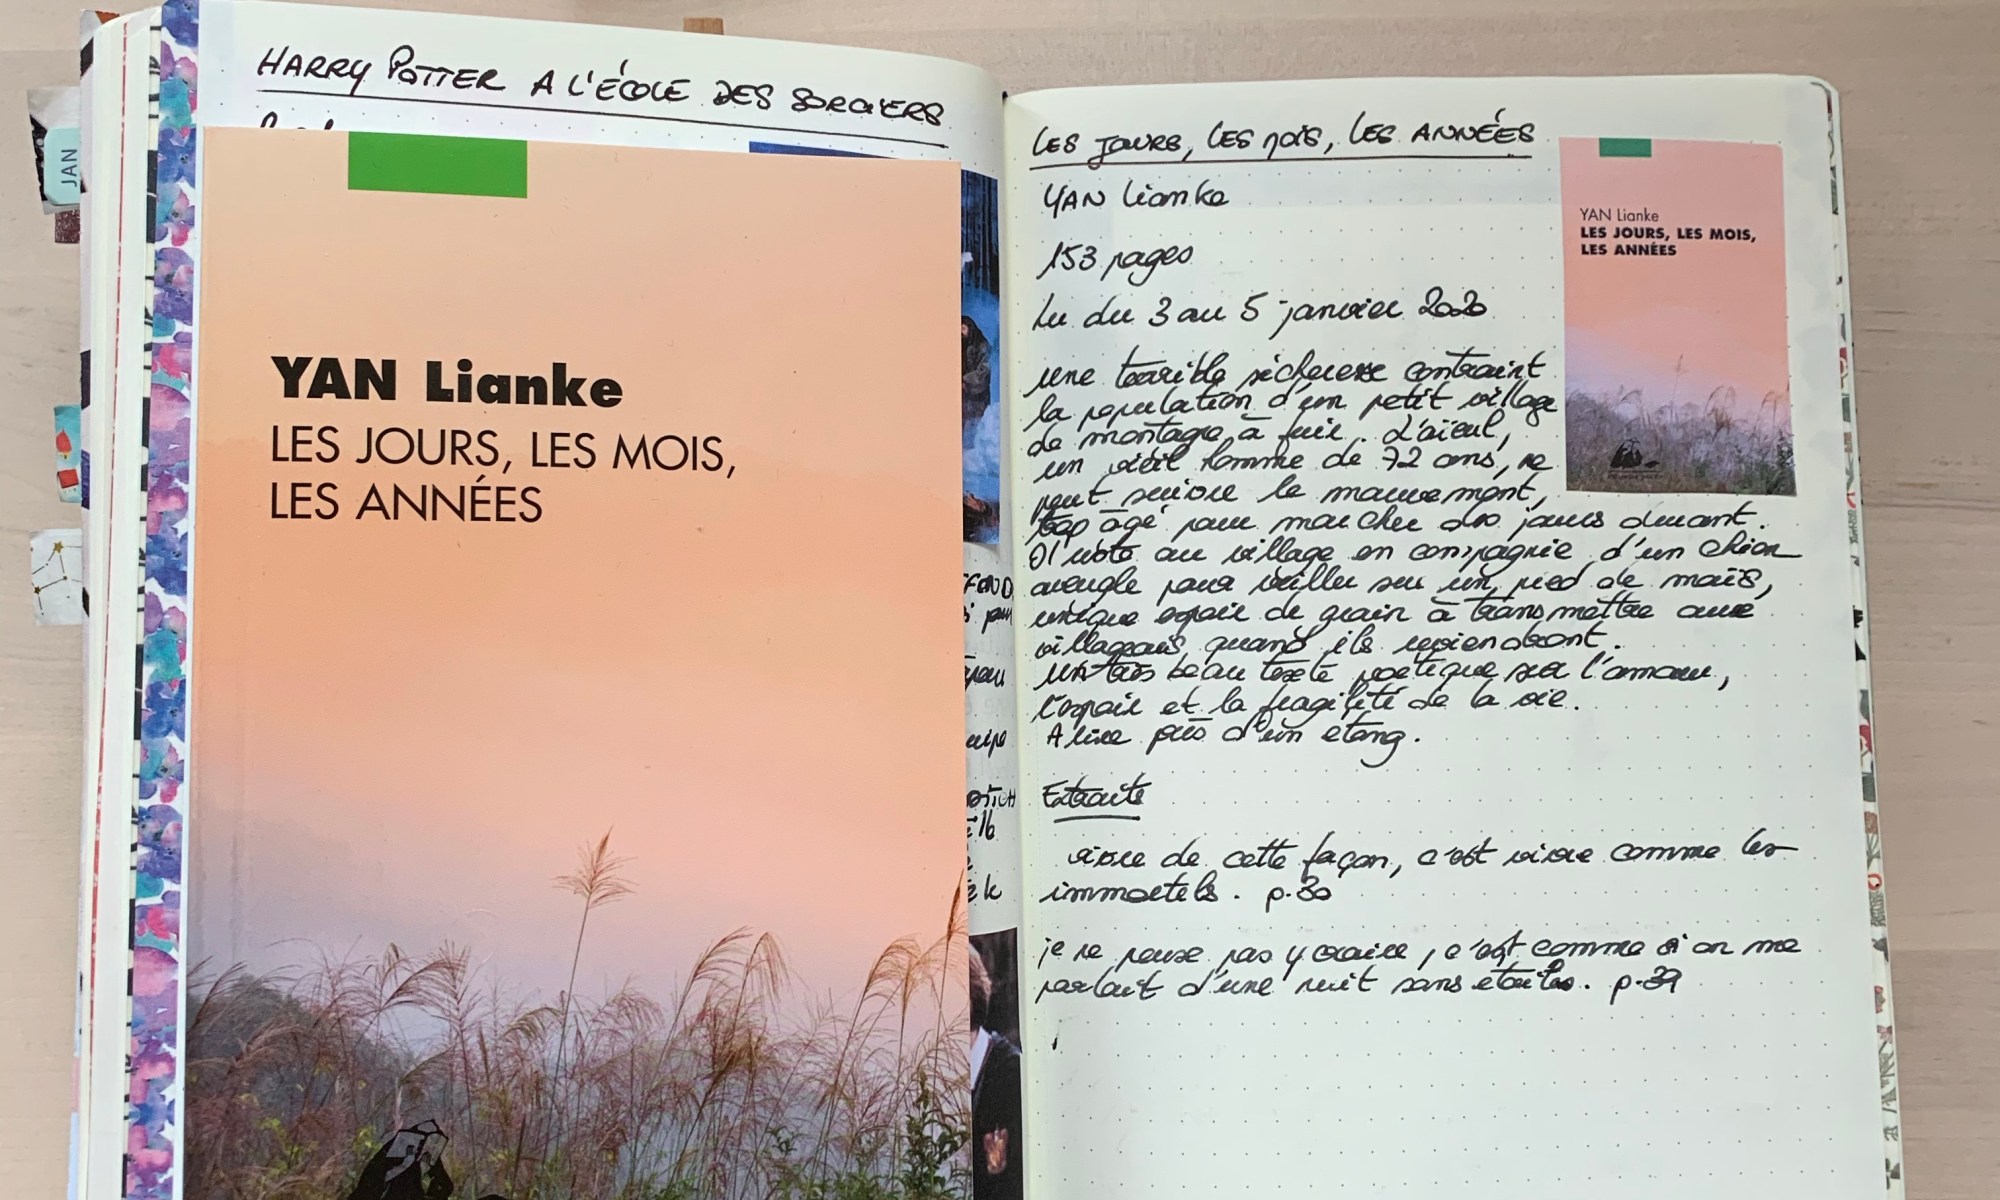 JAN
HARRY POTTER A L'ÉCOLE DES SORCIERS
YAN Lianke
LES JOURS, LES MOIS,
LES ANNÉES
LES JOURS, LES MOIS, LES ANNÉES
YAN Lianke
153 pages
Lu du 3 au 5 janvier 2020
une terrible sécheresse contraint
la population d'un petit village
de montage à fuir. L'aïeul,
un vieil homme de 72 ans, ne
peut suivre le mouvement,
trop âgé pour marcher des jours durant.
Il reste au village en compagnie d'un chien
aveugle pour veiller sur un pied de maïs,
unique espoir de grain à transmettre aux
villageois quand ils reviendront.
un très beau texte poétique sur l'amour,
l'espoir et la fragilité de la vie.
A lire près d'un étang.
Extraits
vivre de cette façon, c'est vivre comme les
immortels. p.30
je ne peux pas y croire, c'est comme si on me
parlait d'une nuit sans étoiles. p.39
YAN Lianke
LES JOURS, LES MOIS,
LES ANNÉES